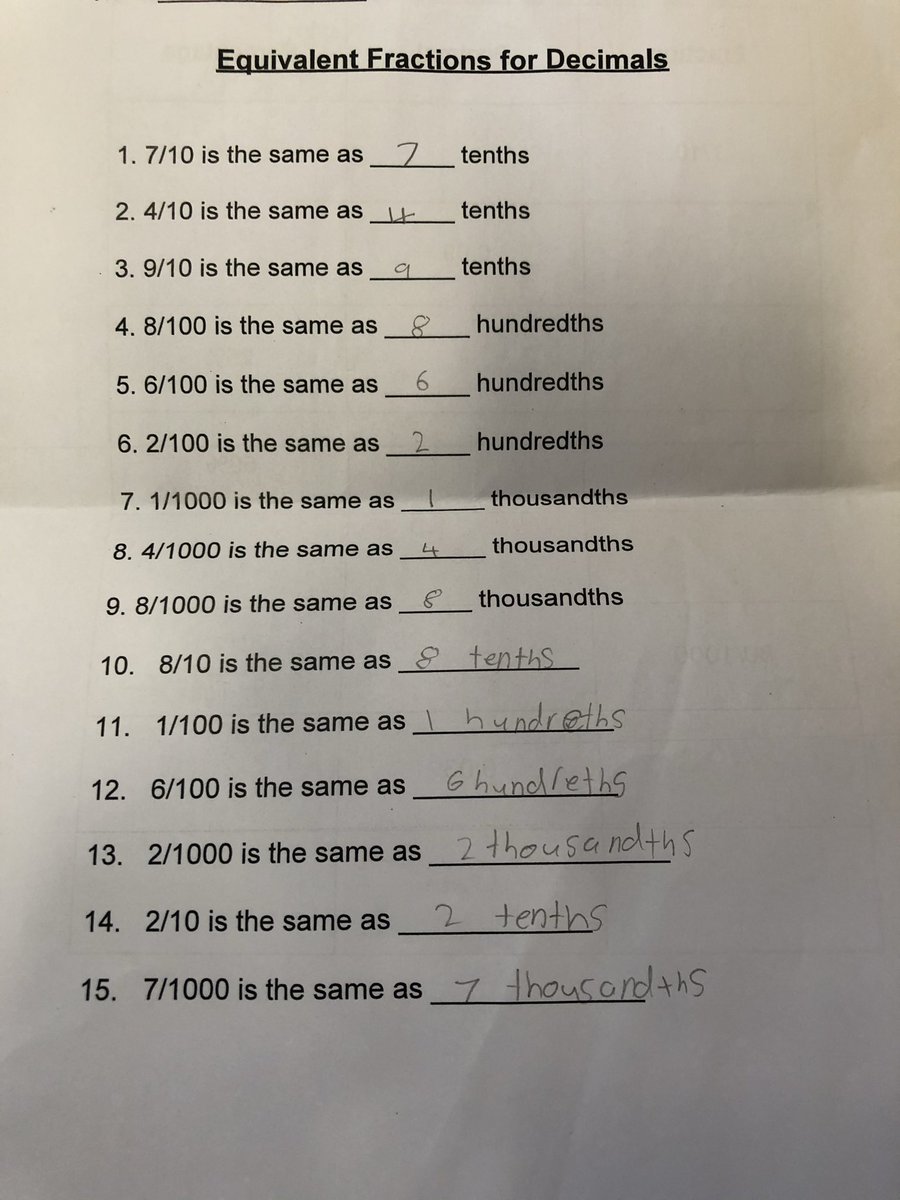 Equivalent Fractions for Decimals
1. 7/10 is the same as 7 tenths
2. 4/10 is the same as 4 tenths
3. 9/10 is the same as 9 tenths
4. 8/100 is the same as 8 hundredths
5. 6/100 is the same as 6 hundredths
6. 2/100 is the same as 2 hundredths
7. 1/1000 is the same as 1 thousandths
8. 4/1000 is the same as 4 thousandths
9. 8/1000 is the same as 8 thousandths
10. 8/10 is the same as 8 tenths
11. 1/100 is the same as 1 hundreths
12. 6/100 is the same as 6 hundreths
13. 2/1000 is the same as 2 thousandths
14. 2/10 is the same as 2 tenths
15. 7/1000 is the same as 7 thousandths